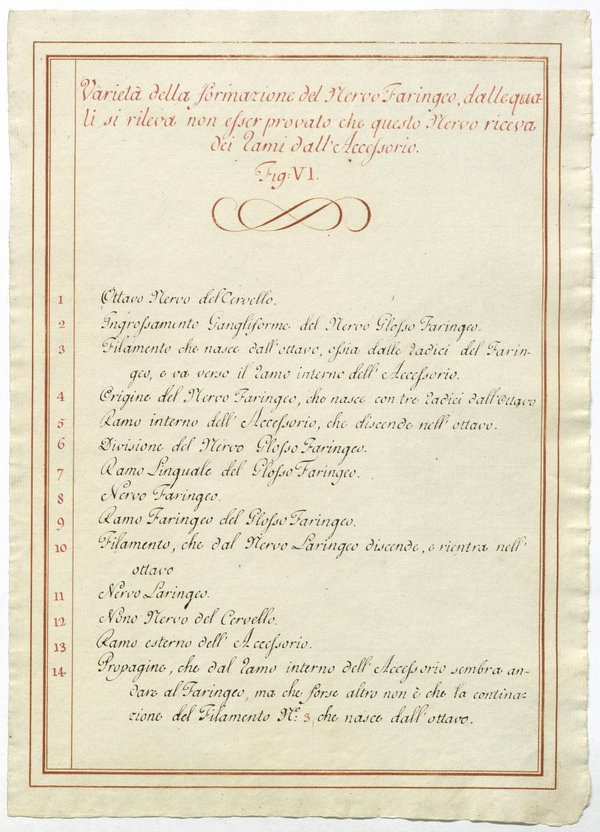 Varietà della formazione del Nervo Faringeo, dalle qua-
li si rileva non esser provato che questo Nervo riceva
dei rami dall'Accessorio.
Fig: VI.
1 Ottavo Nervo del Cervello.
2 Ingrossamento Gangliforme del Nervo Glosso Faringeo.
3 Filamento che nasce dall'ottavo, ossia dalle radici del Farin-
geo, e va verso il ramo interno dell'Accessorio.
4 Origine del Nervo Faringeo, che nasce con tre radici dall'Ottavo
5 Ramo interno dell'Accessorio, che discende nell'ottavo.
6 Divisione del Nervo Glosso Faringeo.
7 Ramo Linguale del Glosso Faringeo.
8 Nervo Faringeo.
9 Ramo Faringeo del Glosso Faringeo.
10 Filamento, che dal Nervo Laringeo discende, e rientra nell'
ottavo
11 Nervo Laringeo.
12 Nono Nervo del Cervello.
13 Ramo esterno dell'Accessorio.
14 Propagine, che dal ramo interno dell'Accessorio sembra an-
dare al Faringeo, ma che forse altro non è che la continua-
zione del Filamento Nº 3, che nasce dall'ottavo.